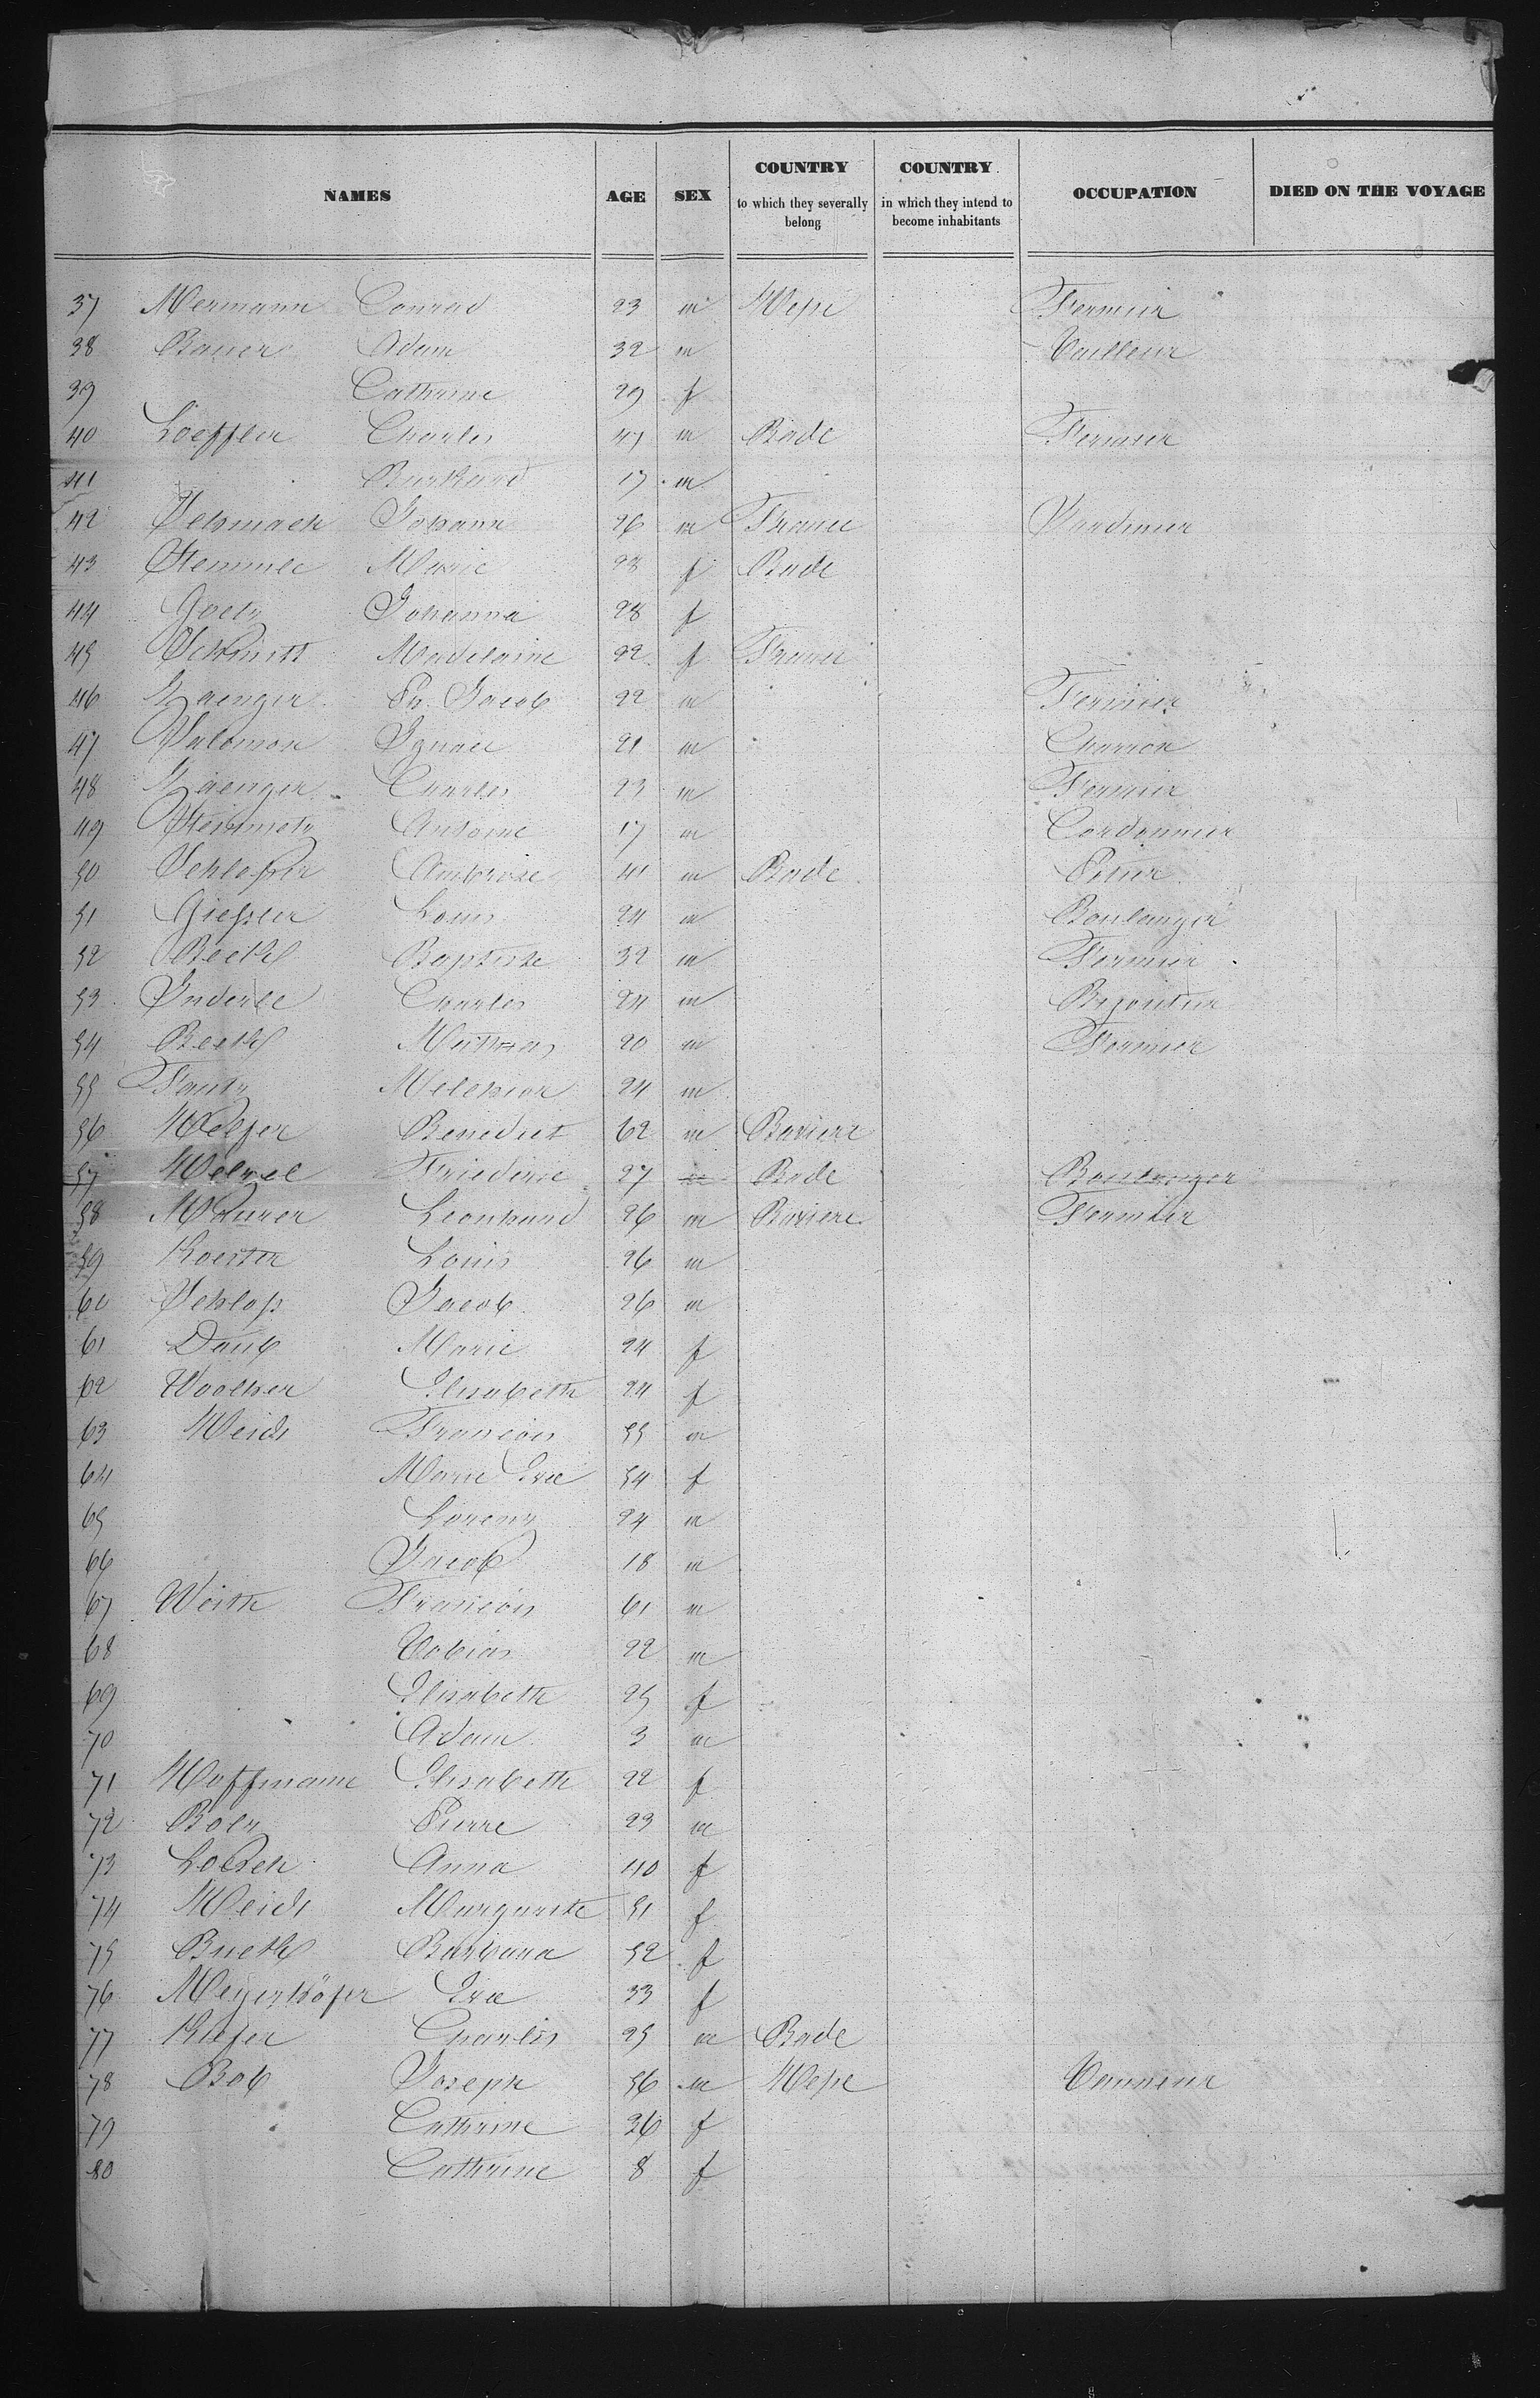 NAMES AGE SEX COUNTRY to which they severally belong COUNTRY in which they intend to become inhabitants OCCUPATION DIED ON THE VOYAGE
37 Hermann Conrad 23 m Hesse Fermier
38 Bauer Adam 32 m Tailleur
39 Cathrine 29 f
40 Loeffler Charles 47 m Bade Fermier
41 Burkard 17 m
42 Schmack Johann 26 m France Jardinier
43 Stemmle Marie 28 f Bade
44 Goetz Johanna 28 f
45 Schmitt Madelaine 22 f France
46 Zaenger Ph. Jacob 22 m Fermier
47 Salomon Ignace 21 m Charron
48 Zaenger Charles 23 m Fermier
49 Steinmetz Antoine 17 m Cordonnier
50 Schlosser Ambroise 41 m Bade
51 Giessler Louis 24 m Boulanger
52 Beckh Baptiste 32 m Fermier
53 Inderle Charles 24 m Bijoutier
54 Beckh Mathias 20 m Fermier
55 Fautz Melchior 24 m
56 Helfer Benedict 62 m Baviere
57 Friederic 27 m Bade Boulanger
58 Maurer Leonhard 26 m Baviere Fermier
59 Koester Louis 26 m
60 Schloss Jacob 26 m
61 Daub Marie 24 f
62 Woelker Elisabeth 24 f
63 Heids Francois 55 m
64 Marie Eve 54 f
65 Lorenz 24 m
66 Jacob 18 m
67 Werth Francois 61 m
68 Tobias 22 m
69 Elisabeth 25 f
70 Adam 3 m
71 Hoffmann Elisabeth 22 f
72 Bolz Pierre 23 m
73 Loesch Anna 40 f
74 Heids Marguerite 51 f
75 Barbara 52 f
76 Meyerhöfer Eve 33 f
77 Kiefer Charles 25 m Bade
78 Bob Joseph 56 m Hesse Tanneur
79 Cathrine 36 f
80 Cathrine 8 f